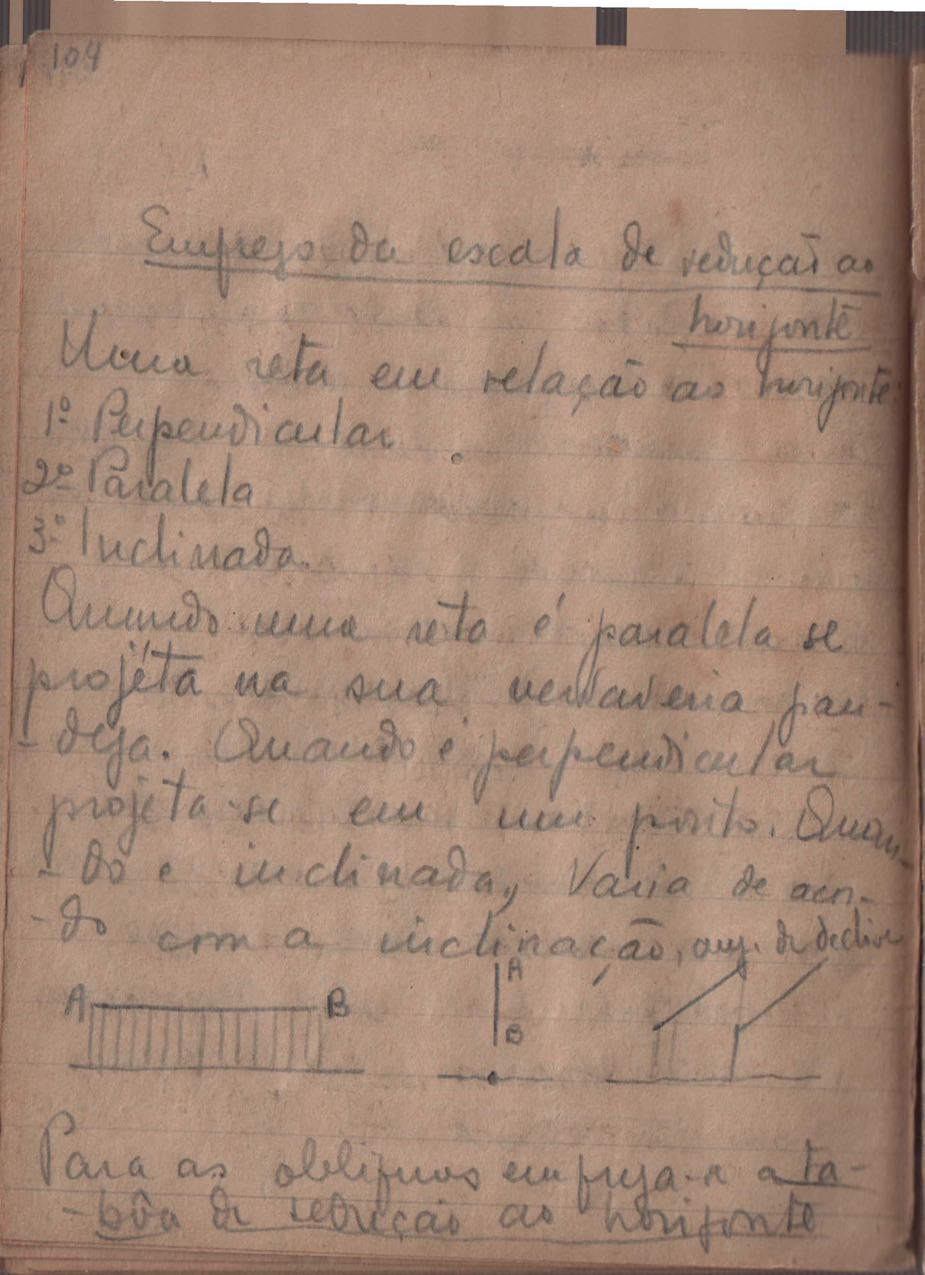 104
Emprego da escala de redução ao
horizonte
Uma reta em relação ao horizonte:
1º Perpendicular
2º Paralela
3º Inclinada.
Quando uma reta é paralela se
projéta na sua verdadeira gran-
-deza. Quando é perpendicular
projeta-se em um ponto. Quan-
-do e inclinada, Varia de acor-
-do com a inclinação, ang. de declive
A B
A
B
Para as obliquas emprega-se a ta-
-bôa de redução ao horizonte